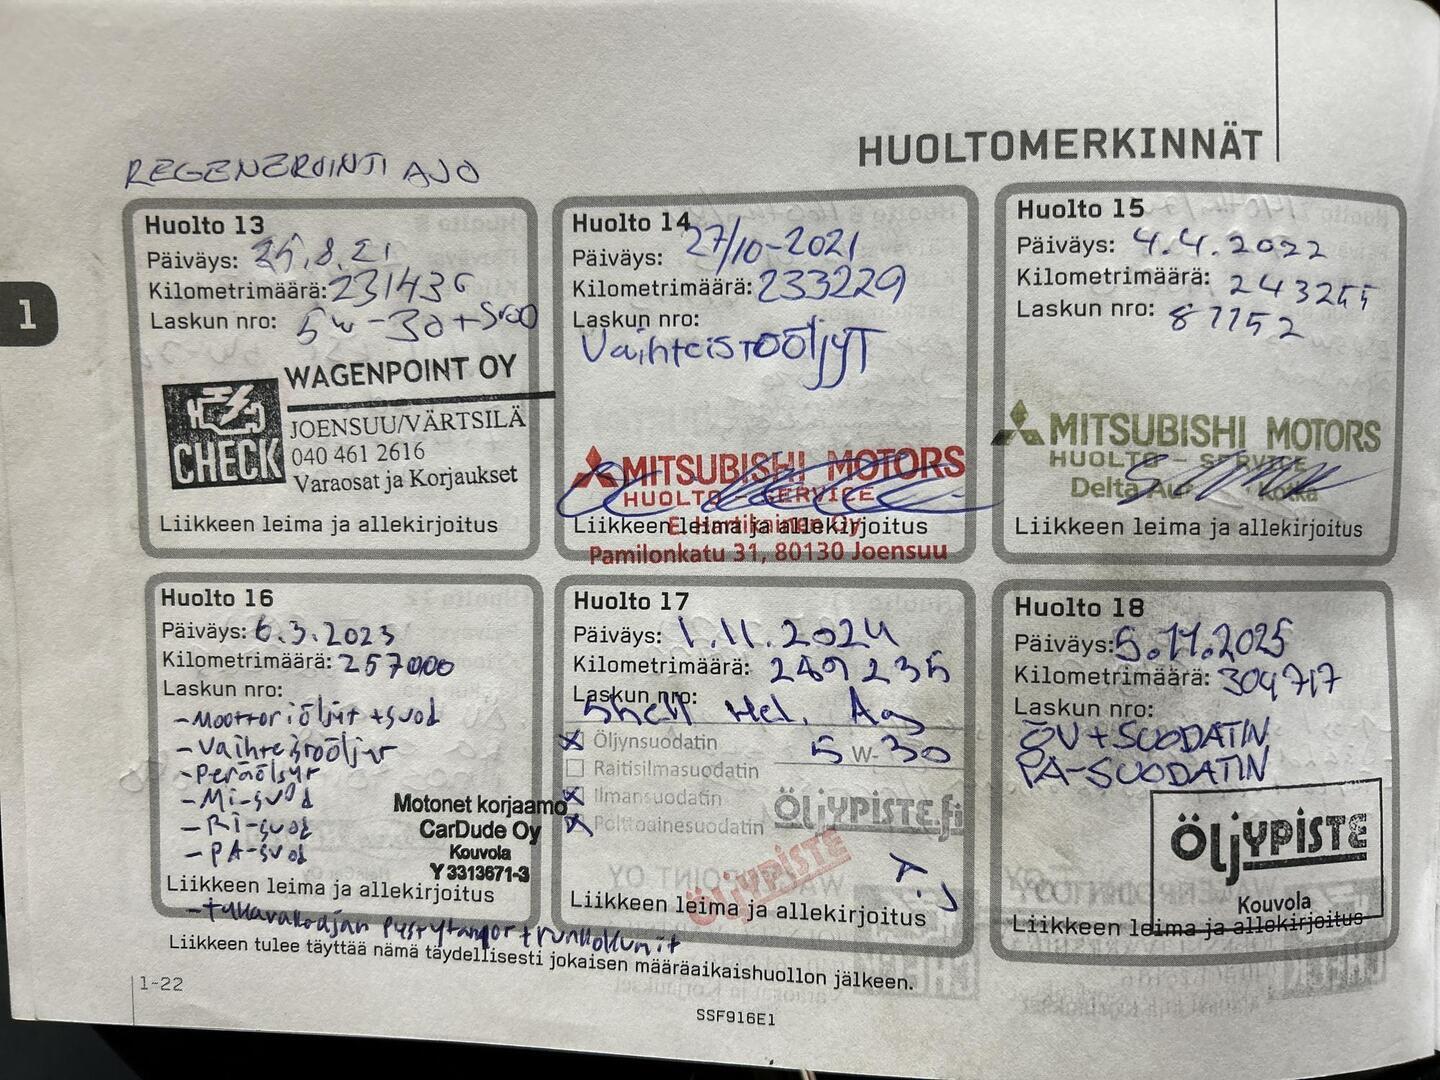 HUOLTOMERKINNÄT
REGENEROINTI AJO
1
Huolto 13
Päiväys: 25.8.21
Kilometrimäärä: 231436
Laskun nro: 5W-30+Suod
WAGENPOINT OY
JOENSUU/VÄRTSILÄ
040 461 2616
Varaosat ja Korjaukset
CHECK
Liikkeen leima ja allekirjoitus
Huolto 14
Päiväys: 27/10-2021
Kilometrimäärä: 233229
Laskun nro:
Vaihteistoöljyt
MITSUBISHI MOTORS
HUOLTO - SERVICE
Liikkeen leima ja allekirjoitus
E. Hartikainen Oy
Pamilonkatu 31, 80130 Joensuu
Huolto 15
Päiväys: 4.4.2022
Kilometrimäärä: 243255
Laskun nro: 87752
MITSUBISHI MOTORS
HUOLTO - SERVICE
Delta Kotka
Liikkeen leima ja allekirjoitus
Huolto 16
Päiväys: 6.3.2023
Kilometrimäärä: 257000
Laskun nro:
-Moottoriöljyt +suod
-Vaihteistoöljyt
-Peräöljyt
-Mi-suod
-Ri-suod
-PA-suod
Motonet korjaamo
CarDude Oy
Kouvola
Y 3313671-3
Liikkeen leima ja allekirjoitus
Huolto 17
Päiväys: 1.11.2024
Kilometrimäärä: 289235
Laskun nro:
Shell Hel. Ag
Öljynsuodatin
5 W- 30
Raitisilmasuodatin
Ilmansuodatin
Polttoainesuodatin
ÖLJYPISTE.fi
ÖLJYPISTE
T.J
Liikkeen leima ja allekirjoitus
Huolto 18
Päiväys: 5.11.2025
Kilometrimäärä: 304717
Laskun nro:
ÖV+SUODATIN
PA-SUODATIN
ÖLJYPISTE
Kouvola
Liikkeen leima ja allekirjoitus
-tukivarakodjan pystytangot + runkokumit
Liikkeen tulee täyttää nämä täydellisesti jokaisen määräaikaishuollon jälkeen.
1-22
SSF916E1